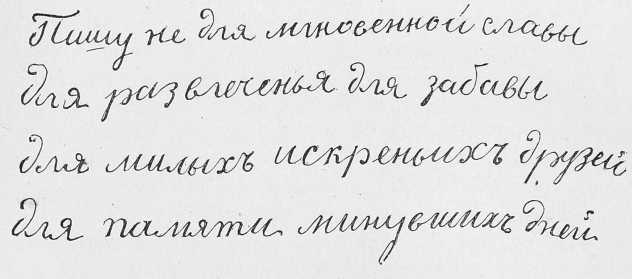 Пишу не для мгновенной славы
для развлеченья для забавы
для милыхъ искреньихъ друзей
для памяти минувшихъ дней